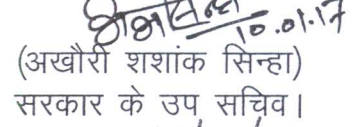 10.01.17
(अखौरी शशांक सिन्हा)
सरकार के उप सचिव।